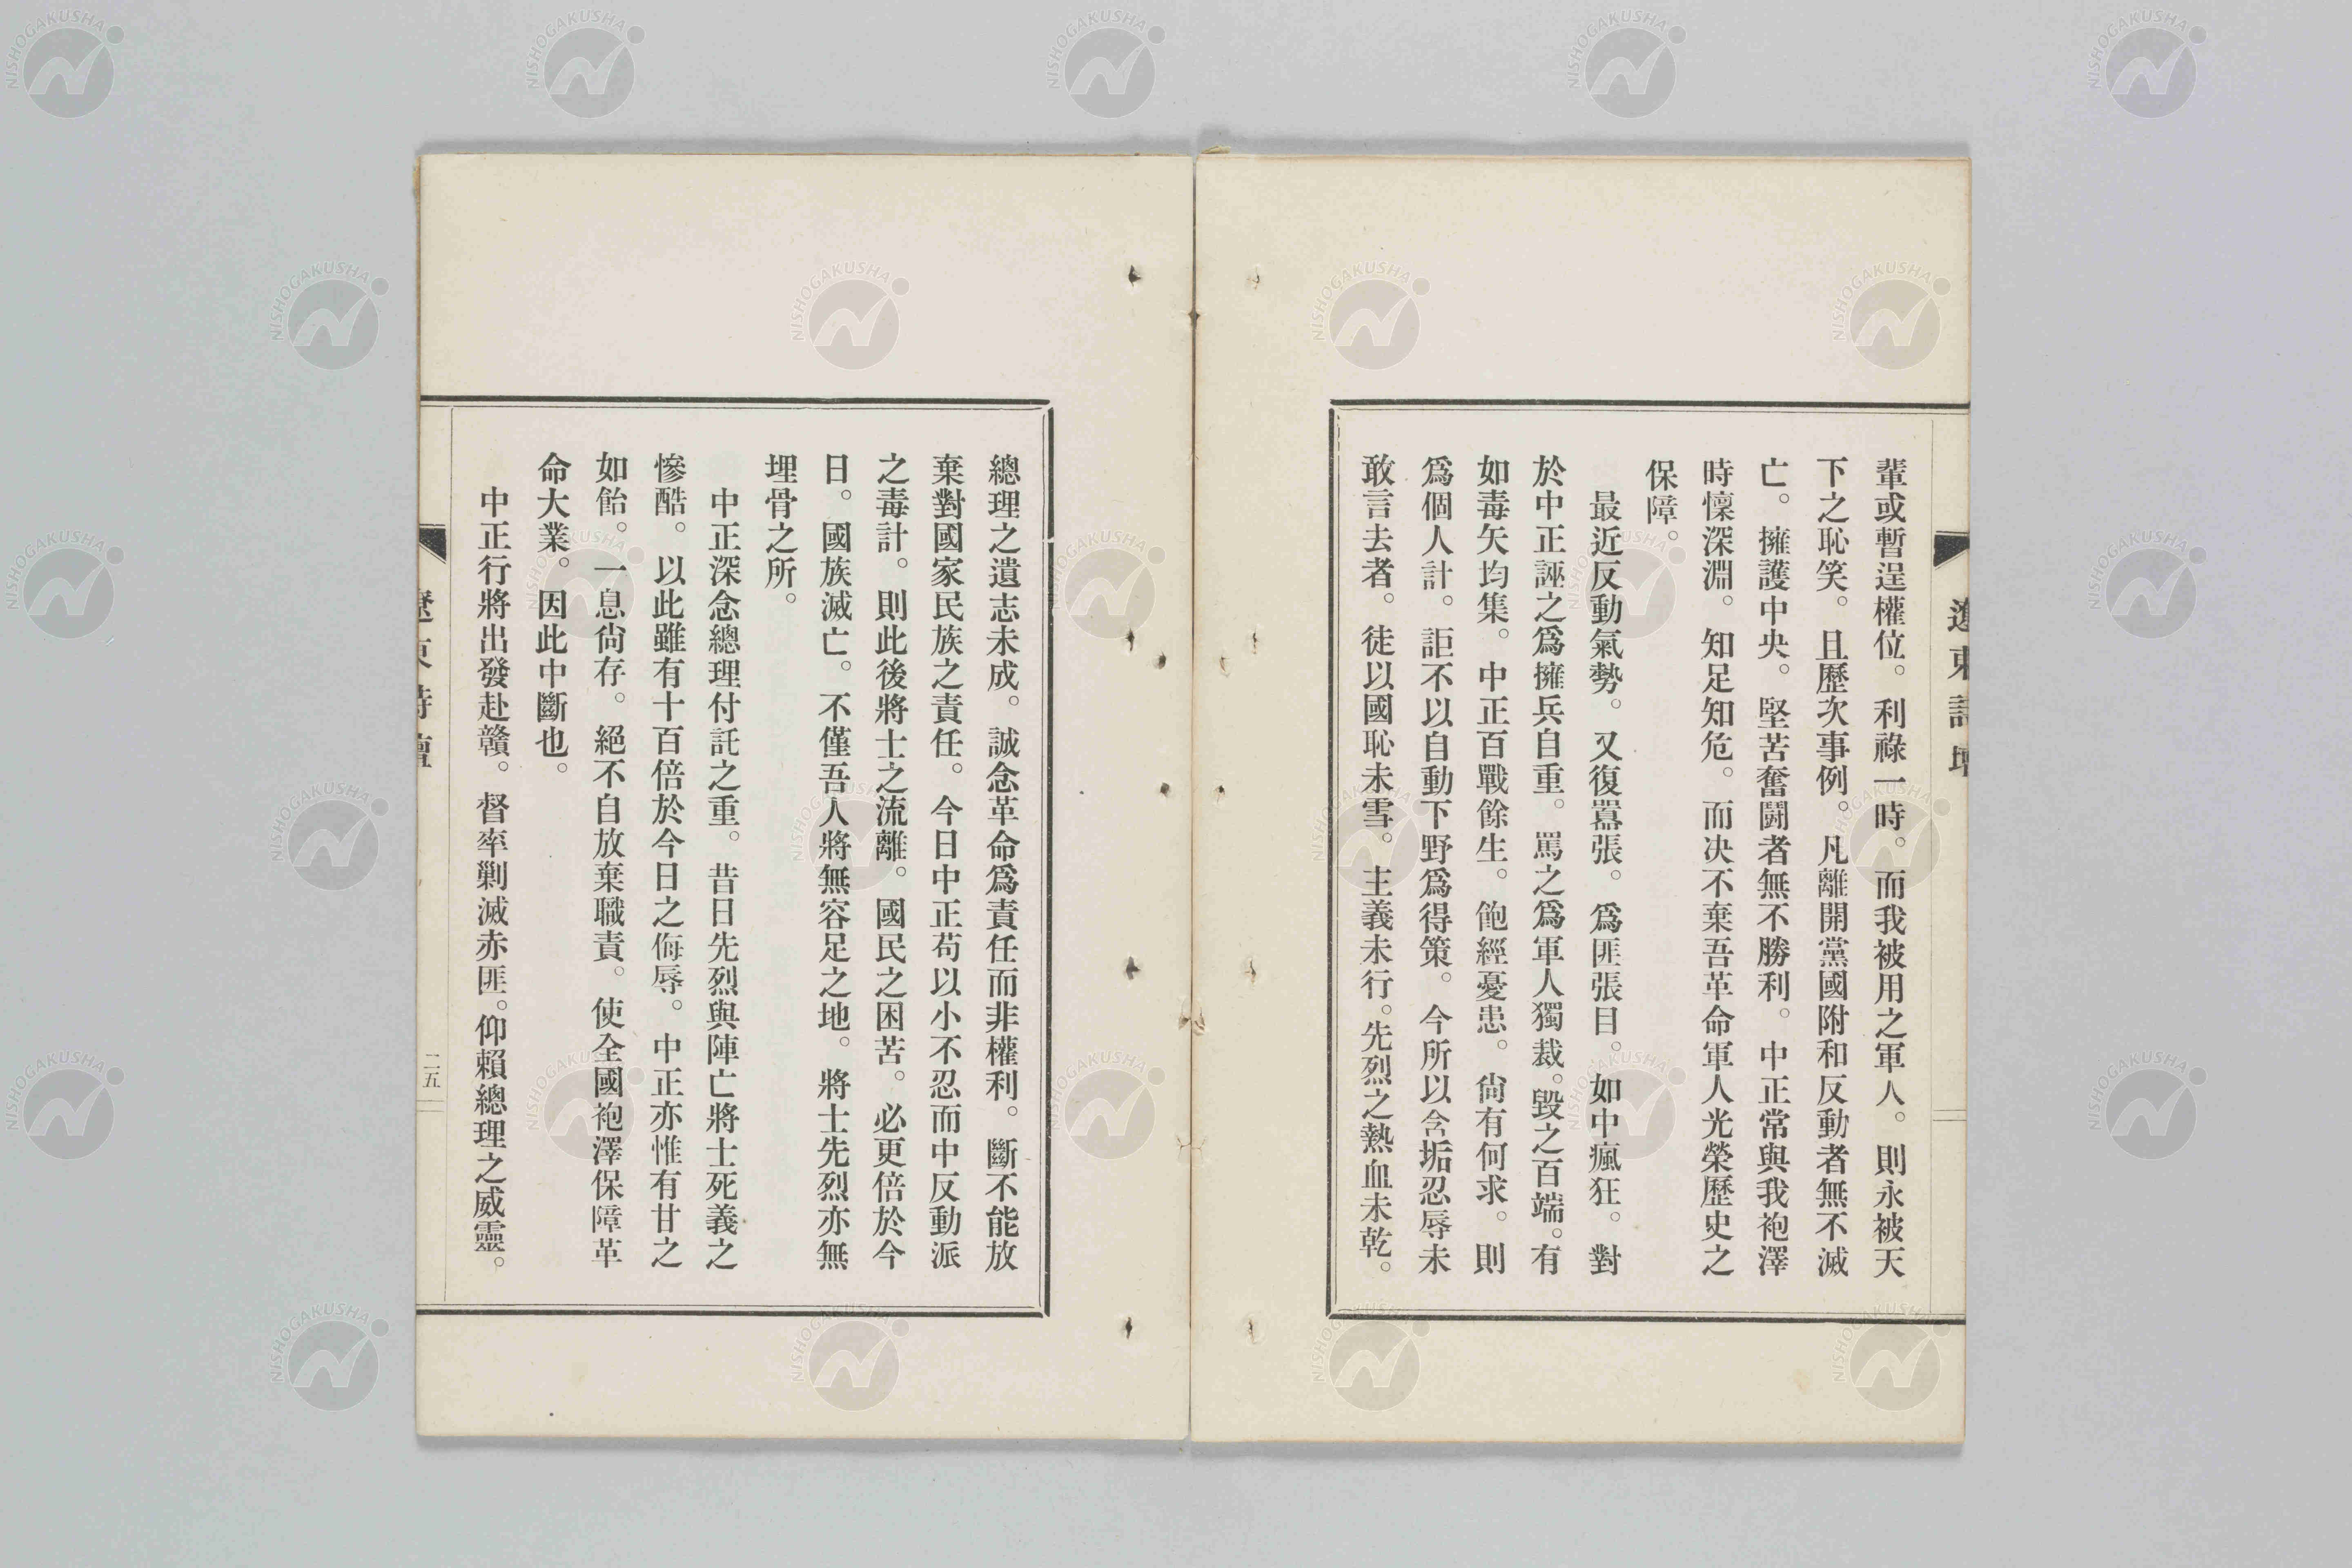 遼東詩壇
輩或暫逞權位。利祿一時。而我被用之軍人。則永被天
下之恥笑。且歷次事例。凡離開黨國附和反動者無不滅
亡。擁護中央。堅苦奮鬪者無不勝利。中正常與我袍澤
時懍深淵。知足知危。而决不棄吾革命軍人光榮歷史之
保障。
最近反動氣勢。又復囂張。爲匪張目。如中瘋狂。對
於中正誣之爲擁兵自重。罵之爲軍人獨裁。毀之百端。有
如毒矢均集。中正百戰餘生。飽經憂患。尙有何求。則
爲個人計。詎不以自動下野爲得策。今所以含垢忍辱未
敢言去者。徒以國恥未雪。主義未行。先烈之熱血未乾。
總理之遺志未成。誠念革命爲責任而非權利。斷不能放
棄對國家民族之責任。今日中正苟以小不忍而中反動派
之毒計。則此後將士之流離。國民之困苦。必更倍於今
日。國族滅亡。不僅吾人將無容足之地。將士先烈亦無
埋骨之所。
中正深念總理付託之重。昔日先烈與陣亡將士死義之
慘酷。以此雖有十百倍於今日之侮辱。中正亦惟有甘之
如飴。一息尙存。絕不自放棄職責。使全國袍澤保障革
命大業。因此中斷也。
中正行將出發赴贛。督率剿滅赤匪。仰賴總理之威靈。
遼東詩壇
二五
NISHOGAKUSHA